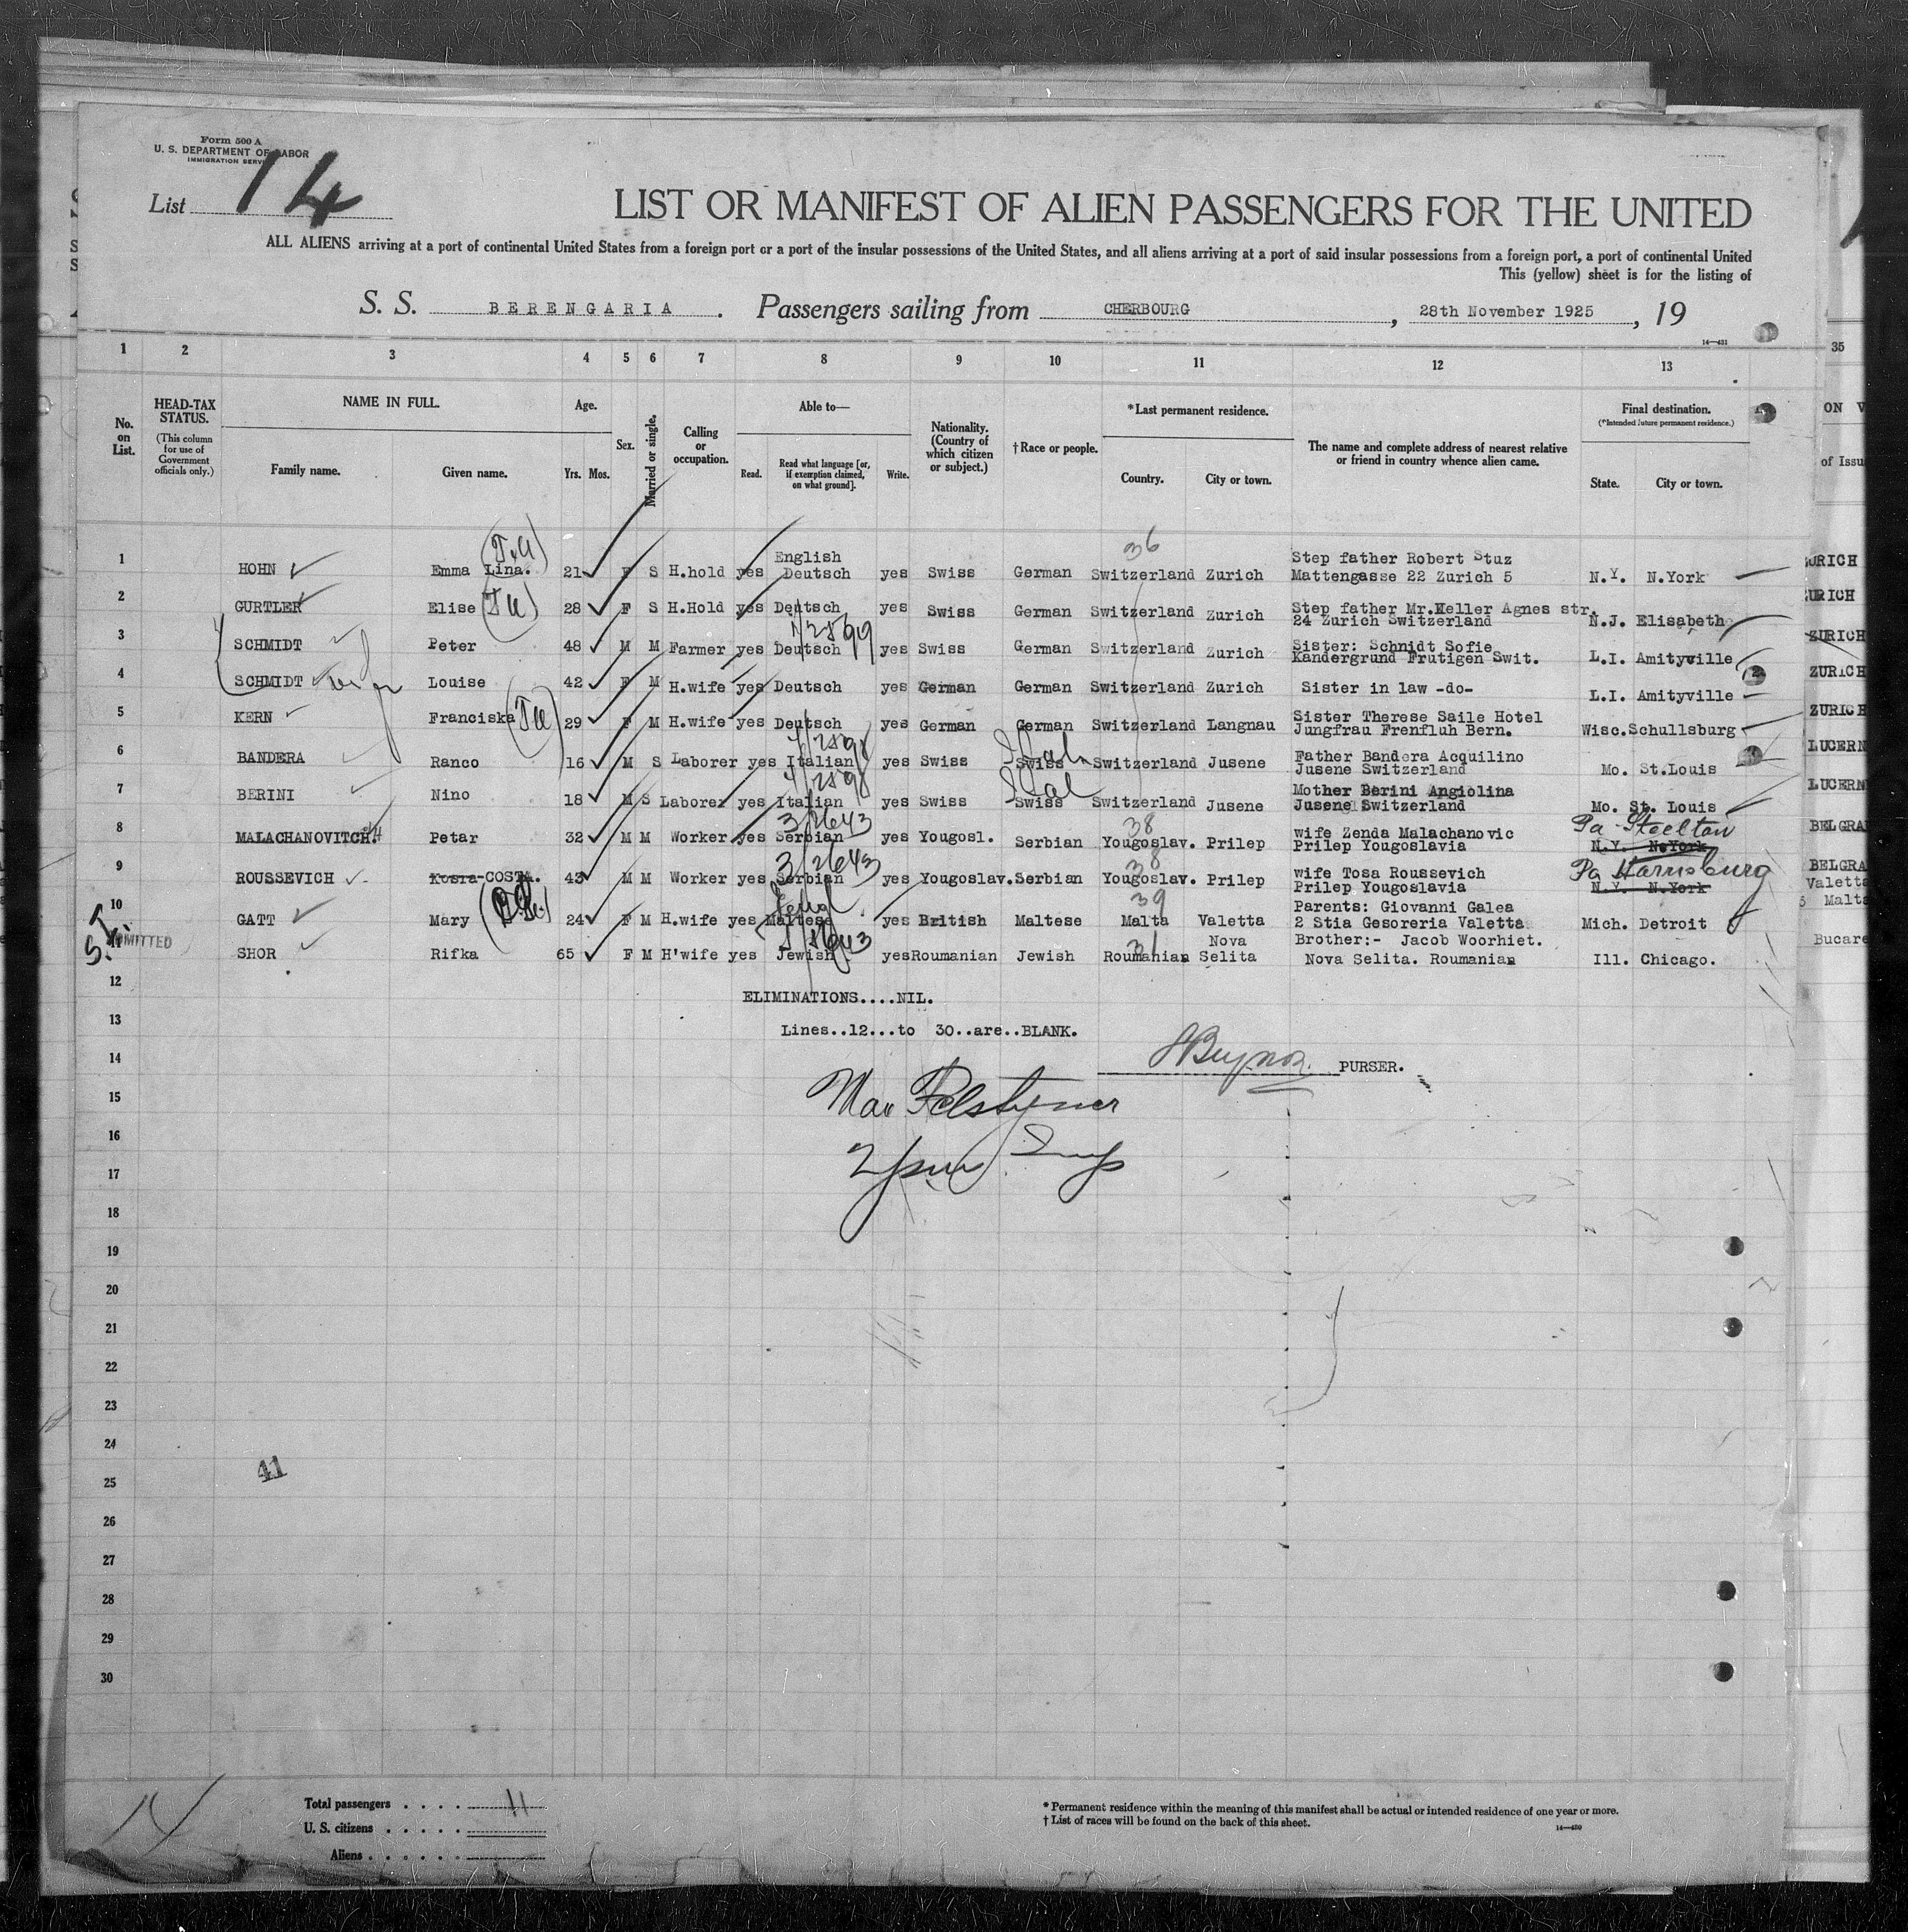 Form 500 A
U. S. DEPARTMENT OF LABOR
IMMIGRATION SERVICE
List 14
LIST OR MANIFEST OF ALIEN PASSENGERS FOR THE UNITED
ALL ALIENS arriving at a port of continental United States from a foreign port or a port of the insular possessions of the United States, and all aliens arriving at a port of said insular possessions from a foreign port, a port of continental United
This (yellow) sheet is for the listing of
S. S. BERENGARIA. Passengers sailing from CHERBOURG, 28th November 1925, 19
14—431
1 2 3 4 5 6 7 8 9 10 11 12 13
No. on List.
HEAD-TAX STATUS.
(This column for use of Government officials only.)
NAME IN FULL.
Family name. Given name.
Age.
Yrs. Mos.
Sex.
Married or single.
Calling or occupation.
Able to—
Read. Read what language [or, if exemption claimed, on what ground]. Write.
Nationality. (Country of which citizen or subject.)
†Race or people.
*Last permanent residence.
Country. City or town.
The name and complete address of nearest relative or friend in country whence alien came.
Final destination.
(*Intended future permanent residence.)
State. City or town.
36
English Step father Robert Stuz
1 HOHN Emma Lina. 21 F S H.hold yes Deutsch yes Swiss German Switzerland Zurich Mattengasse 22 Zurich 5 N.Y. N.York
2 GURTLER Elise 28 F S H.Hold yes Deutsch yes Swiss German Switzerland Zurich Step father Mr.Keller Agnes str. N.J. Elisabeth
24 Zurich Switzerland
3 SCHMIDT Peter 48 M M Farmer yes Deutsch yes Swiss German Switzerland Zurich Sister: Schnidt Sofie L.I. Amityville
Kandergrund Frutigen Swit.
4 SCHMIDT Louise 42 F M H.wife yes Deutsch yes German German Switzerland Zurich Sister in law -do- L.I. Amityville
5 KERN Franciska 29 F M H.wife yes Deutsch yes German German Switzerland Langnau Sister Therese Saile Hotel Wisc. Schullsburg
Jungfrau Frenfluh Bern.
6 BANDERA Ranco 16 M S Laborer yes Italian yes Swiss Swiss Switzerland Jusene Father Bandera Acquilino Mo. St.Louis
Jusene Switzerland
7 BERINI Nino 18 M S Laborer yes Italian yes Swiss Swiss Switzerland Jusene Mother Berini Angiolina Mo. St. Louis
Jusene Switzerland
3/2643 38 Pa Steelton
8 MALACHANOVITCH. Petar 32 M M Worker yes Serbian yes Yougosl. Serbian Yougoslav. Prilep wife Zenda Malachanovic N.Y. N.York
Prilep Yougoslavia
3/2643 38 Pa Harrisburg
9 ROUSSEVICH Kosta-COSTA. 43 M M Worker yes Serbian yes Yougoslav. Serbian Yougoslav. Prilep wife Tosa Roussevich N.Y. N.York
Prilep Yougoslavia
39
10 GATT Mary 24 F M H.wife yes Maltese yes British Maltese Malta Valetta Parents: Giovanni Galea Mich. Detroit
2 Stia Gesoreria Valetta
ADMITTED
11 SHOR Rifka 65 F M H'wife yes Jewish yes Roumanian Jewish Roumanian Nova Selita Brother:- Jacob Woorhiet. Ill. Chicago.
31 Nova Selita. Roumanian
12
ELIMINATIONS....NIL.
13
Lines..12...to 30..are..BLANK.
14
PURSER.
15
16
17
18
19
20
21
22
23
24
25
26
27
28
29
30
41
Total passengers . . . . 11
U. S. citizens . . . . .
Aliens . . . . . .
* Permanent residence within the meaning of this manifest shall be actual or intended residence of one year or more.
† List of races will be found on the back of this sheet.
14—430
35
ON V
of Issu
ZURICH
ZURICH
ZURICH
ZURICH
ZURICH
LUCERN
LUCERN
BELGRA
BELGRA
Valetta
Malta
Bucare